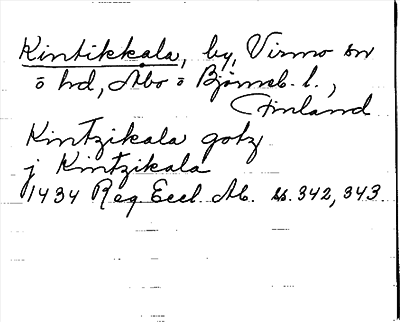 Kintikkala, by, Virmo sn
o hd, Åbo o Björneb. l.,
Finland
Kintzikala gotz
j Kintzikala
1434 Reg. Eccl. Ab. ss. 342, 343.